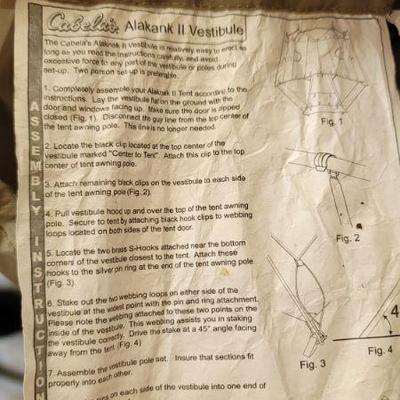 Cabela's Alakank II Vestibule
The Cabela's Alaknek II Vestibule is relatively easy to erect as
long as you read the instructions carefully, and avoid
excessive force to any part of the vestibule or poles during
set-up. Two person set-up is preferable.
1. Completely assemble your Alaknak II Tent according to the
instructions. Lay the vestibule flat on the ground with the
door and windows facing up. Make sure the door is zipped
closed (Fig. 1). Disconnect the guy line from the top center of
the tent awning pole. This line is no longer needed.
2. Locate the black clip located at the top center of the
vestibule marked "Center to Tent". Attach this clip to the top
center of tent awning pole.
3. Attach remaining black clips on the vestibule to each side
of the tent awning pole (Fig. 2).
4. Pull vestibule hood up and over the top of the tent awning
pole. Secure to tent by attaching black hook clips to webbing
loops located on both sides of the tent door.
5. Locate the two brass S-Hooks attached near the bottom
corners of the vestibule closest to the tent. Attach these
hooks to the silver pin ring at the end of the tent awning pole
(Fig. 3)
6. Stake out the two webbing loops on either side of the
vestibule at the widest point with the pin and ring attachment.
Please note the webbing attached to these two points on the
inside of the vestibule. This webbing assists you in staking
the vestibule correctly. Drive the stake at a 45° angle facing
away from the tent (Fig. 4)
7. Assemble the vestibule pole set. Insure that sections fit
properly into each other.
on each side of the vestibule into one end of
ASSEMBLY INSTRUCTION
Fig. 1
Fig. 2
Fig. 3
4
Fig. 4